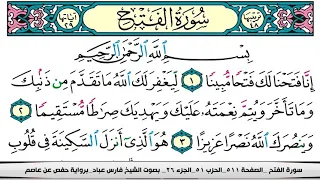 ترتيبها سُورَةُ الفَتْح آياتها
٤٨ ٢٩
بِسْمِ ٱللَّهِ ٱلرَّحْمَٰنِ ٱلرَّحِيمِ
إِنَّا فَتَحْنَا لَكَ فَتْحًا مُّبِينًا ١ لِّيَغْفِرَ لَكَ ٱللَّهُ مَا تَقَدَّمَ مِن ذَنۢبِكَ
وَمَا تَأَخَّرَ وَيُتِمَّ نِعْمَتَهُۥ عَلَيْكَ وَيَهْدِيَكَ صِرَٰطًا مُّسْتَقِيمًا ٢
وَيَنصُرَكَ ٱللَّهُ نَصْرًا عَزِيزًا ٣ هُوَ ٱلَّذِىٓ أَنزَلَ ٱلسَّكِينَةَ فِى قُلُوبِ
سورة الفتح _الصفحة ٥١١_الحزب ٥١_الجزء ٢٦_ بصوت الشيخ فارس عباد_برواية حفص عن عاصم